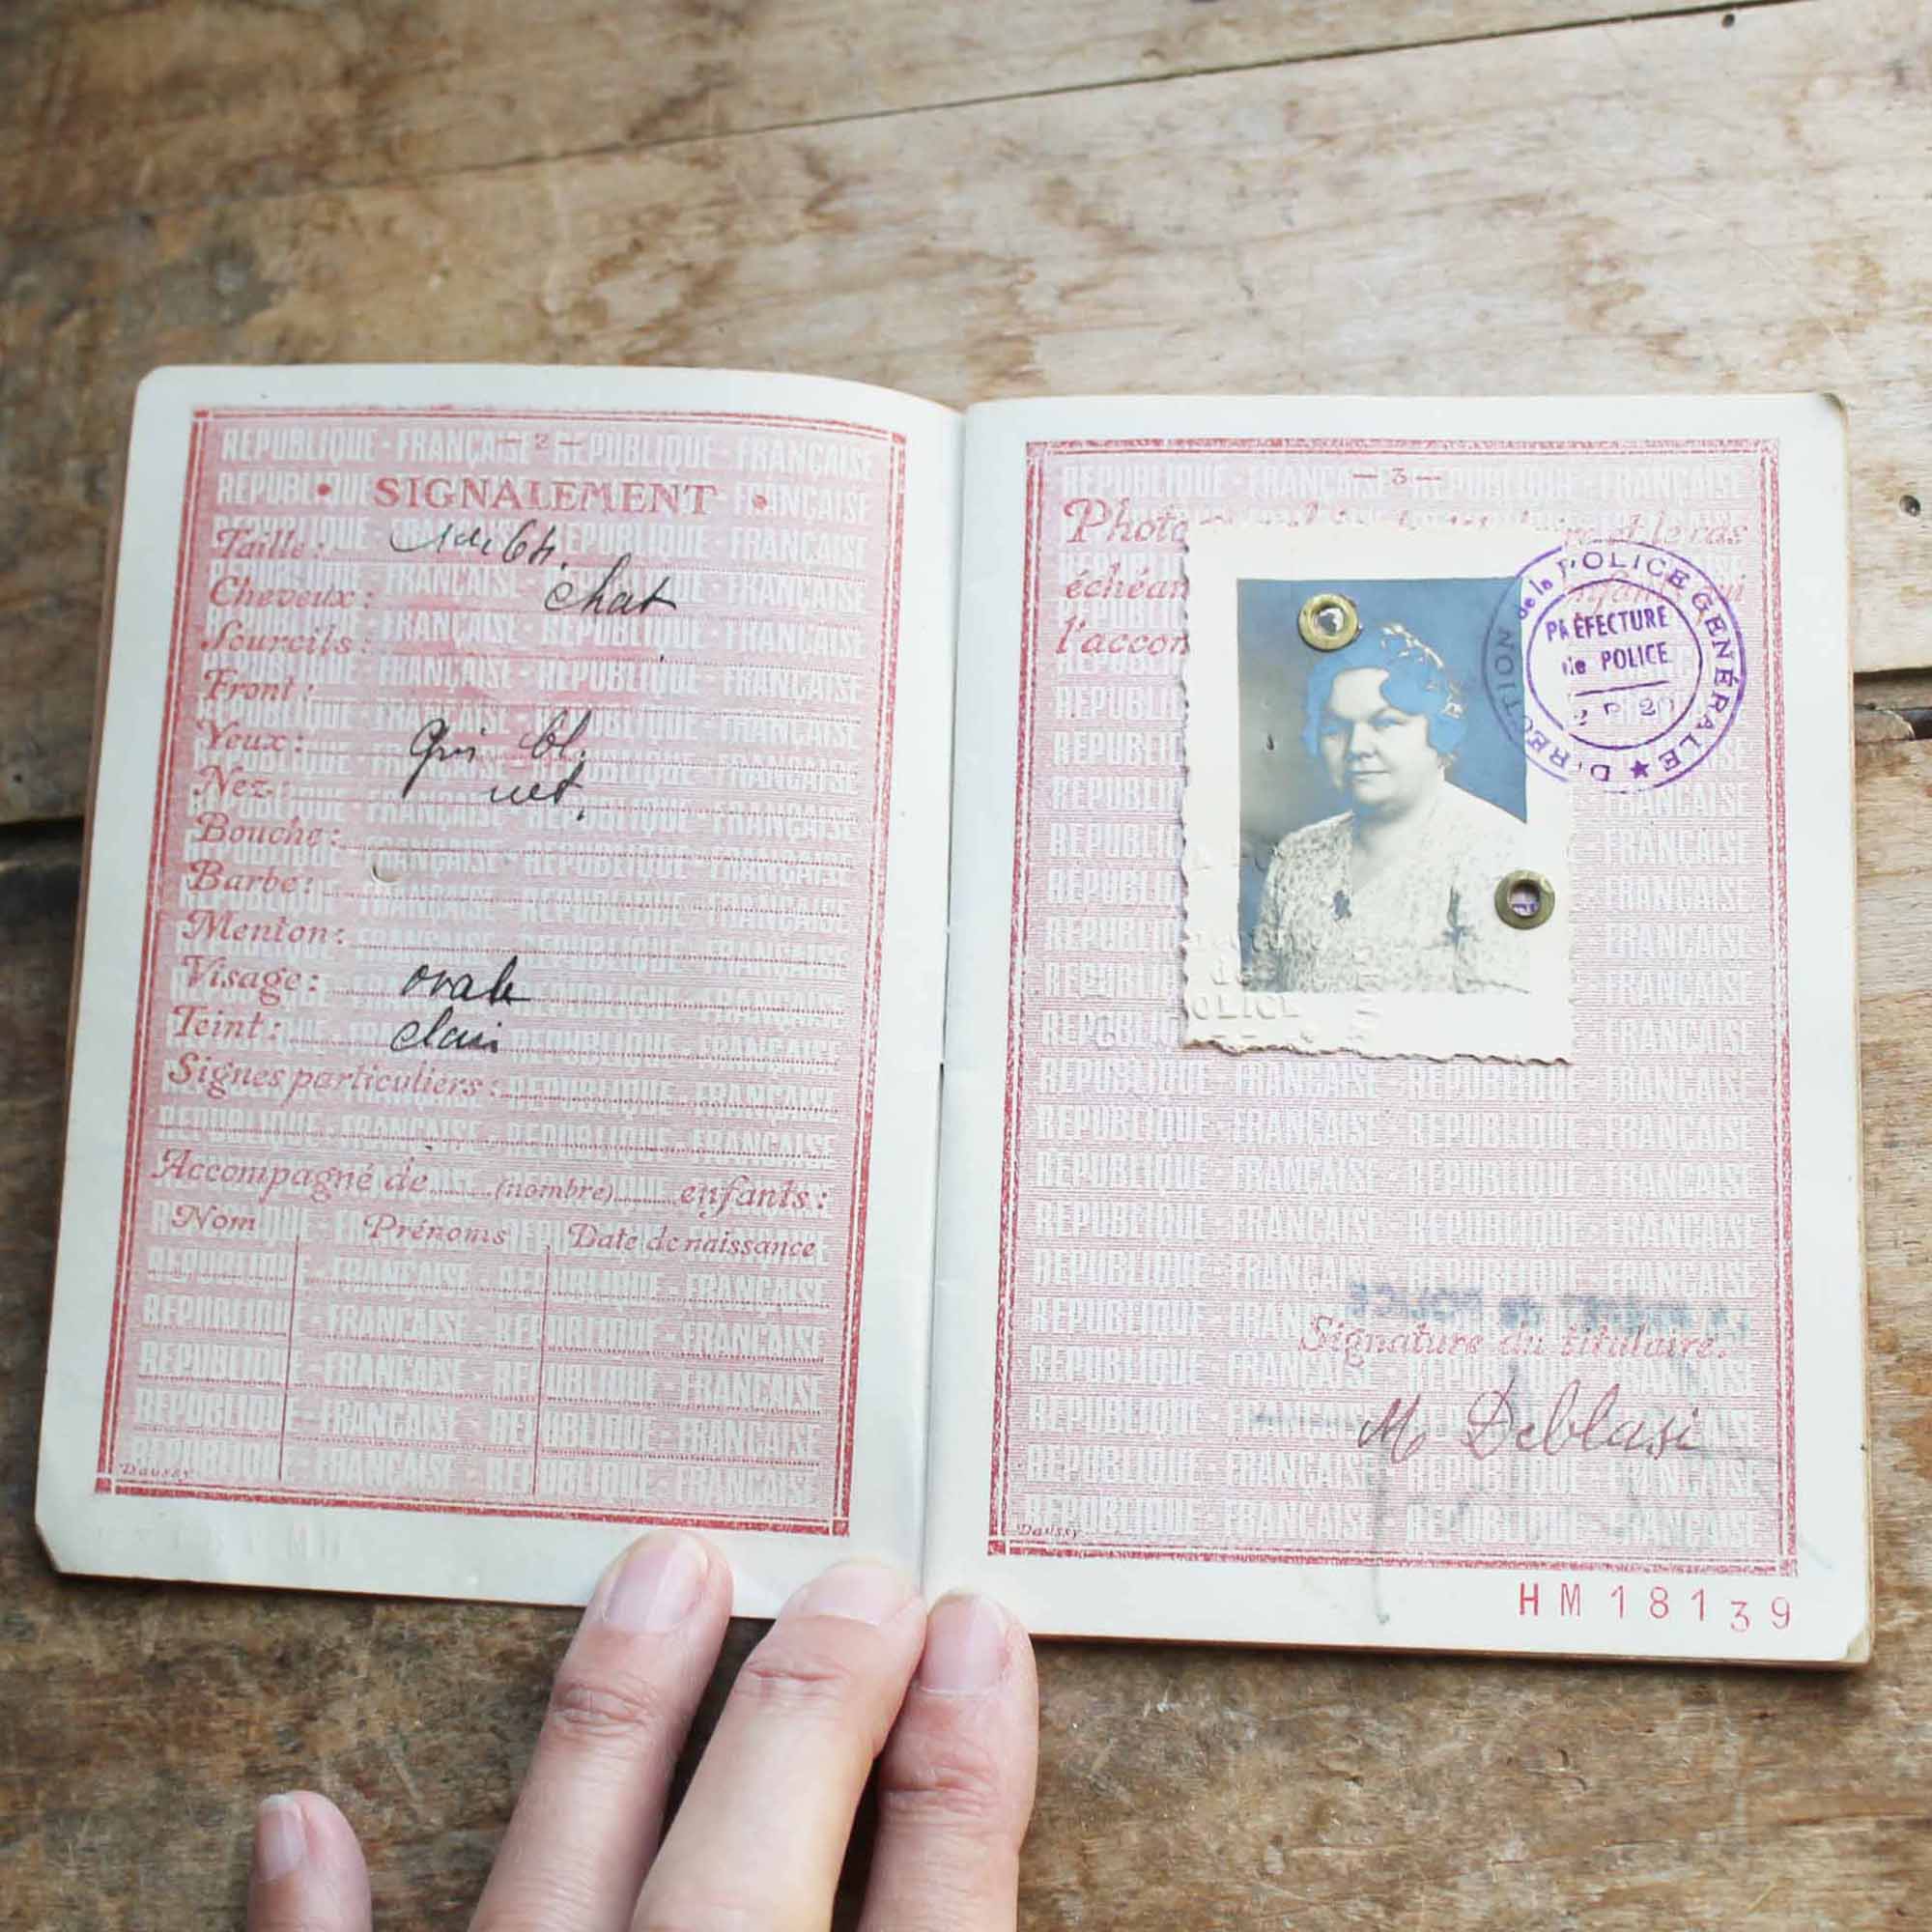 — 2 —
• SIGNALEMENT •
Taille : 1m 64.
Cheveux : chat
Sourcils :
Front :
Yeux : gris bl.
Nez :
Bouche :
Barbe :
Menton :
Visage : ovale
Teint : clair
Signes particuliers :
Accompagné de (nombre) enfants :
Nom Prénoms Date de naissance
Daussy
— 3 —
Photo
échéan
l'accom
DIRECTION de la POLICE GÉNÉRALE ★
PRÉFECTURE
de POLICE
Signature du titulaire.
M Deblasi
Daussy
HM18139
RÉPUBLIQUE - FRANÇAISE - RÉPUBLIQUE - FRANÇAISE